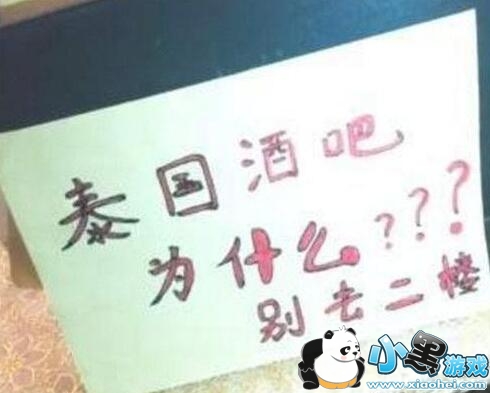 泰国酒吧
为什么???
别去二楼
小黑游戏
www.xiaohei.com